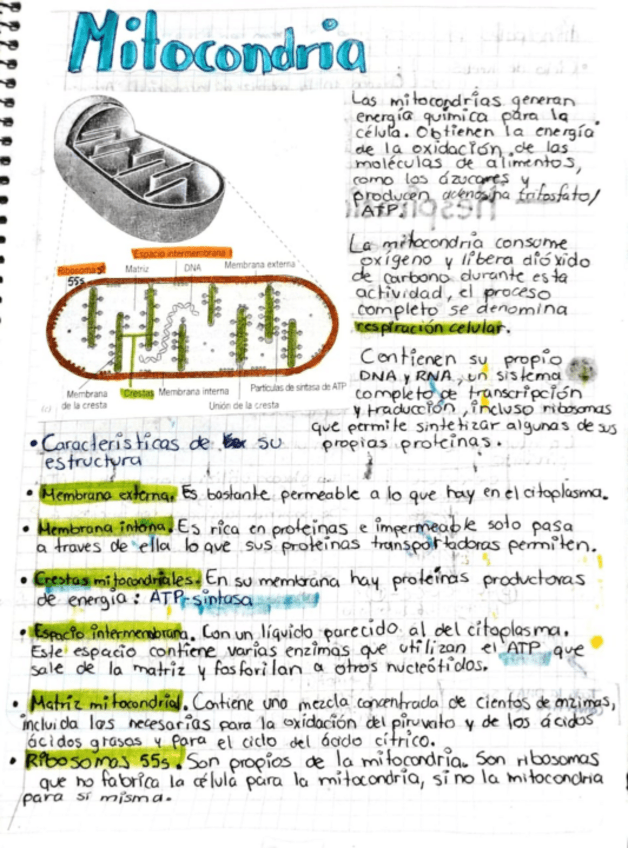 Mitocondria
Las mitocondrias generan
energía química para la
célula. Obtienen la energía
de la oxidación de las
moléculas de alimentos,
como los ázucares y
producen adenosina trifosfato/
ATP.
La mitocondria consume
oxígeno y libera dióxido
de carbono durante esta
actividad, el proceso
completo se denomina
respiración celular.
Contienen su propio
DNA y RNA, un sistema
completo de transcripción
y traducción, incluso ribosomas
que permite sintetizar algunas de sus
propias proteinas.
Espacio intermembrana
Ribosomas
55s
Matriz
DNA
Membrana externa
Membrana
de la cresta
Crestas
Membrana interna
Partículas de sintasa de ATP
Unión de la cresta
• Caracteristicas de su
estructura
• Membrana externa. Es bastante permeable a lo que hay en el citoplasma.
• Membrana interna. Es rica en proteinas e impermeable solo pasa
a traves de ella lo que sus proteinas transportadoras permiten.
• Crestas mitocondriales. En su membrana hay proteínas productoras
de energía: ATP-sintasa
• Espacio intermembrana. Con un líquido parecido al del citoplasma.
Este espacio contiene varias enzimas que utilizan el ATP que
sale de la matriz y fosforilan a otros nucleótidos.
• Matriz mitocondrial. Contiene una mezcla concentrada de cientos de enzimas,
incluida las necesarias para la oxidación del piruvato y de los ácidos
ácidos grasos y para el ciclo del ácido cítrico.
• Ribosomas 55s. Son propios de la mitocondria. Son ribosomas
que no fabrica la célula para la mitocondria, si no la mitocondria
para si misma.